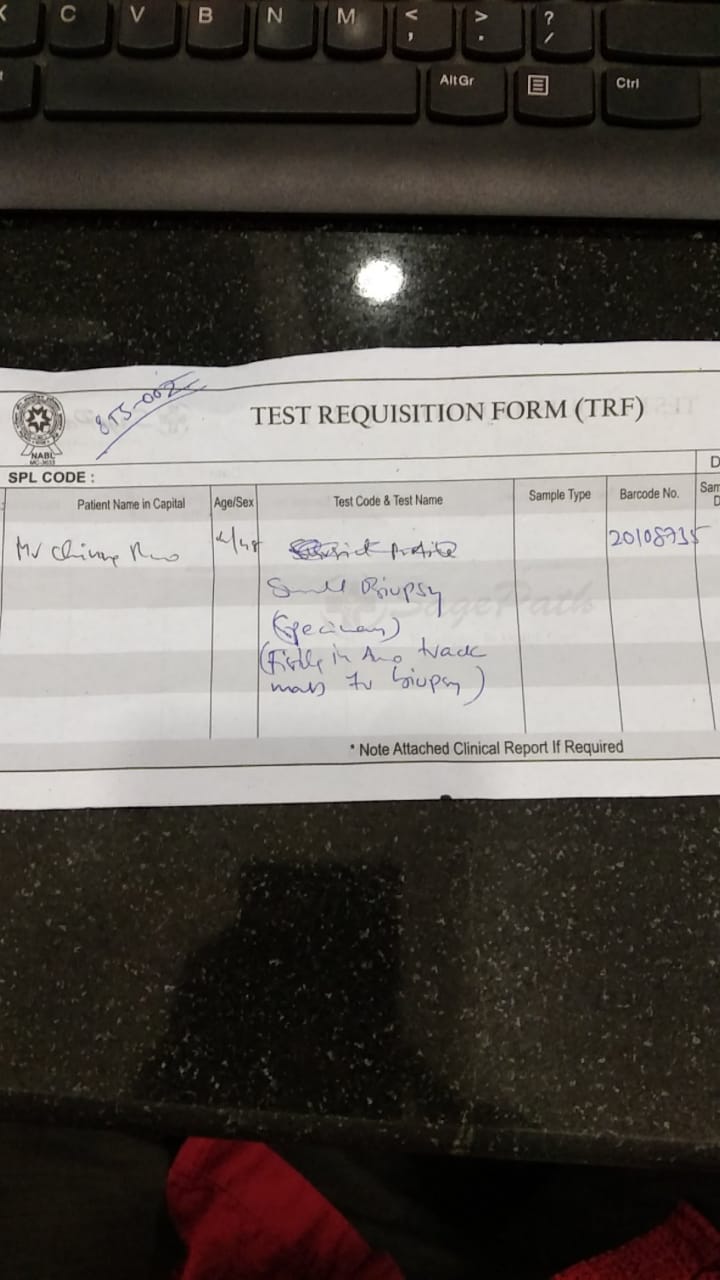 C V B N M < , > . ? /
Alt Gr Ctrl
855-002
TEST REQUISITION FORM (TRF)
NABL
SPL CODE :
D
Patient Name in Capital Age/Sex Test Code & Test Name Sample Type Barcode No. Sam
D
Mr 20108735
Small Biopsy
SagePath
(Specimen)
(Fistula in Ano track
mass for biopsy)
* Note Attached Clinical Report If Required